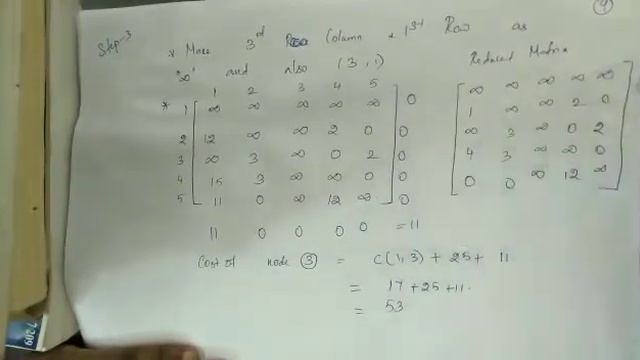 4
Step-3
* Make 3rd Column & 1st Row as
"∞" and also (3,1)
Reduced Matrix
1 2 3 4 5
* 1 ∞ ∞ ∞ ∞ ∞ 0
2 12 ∞ ∞ 2 0 0
3 ∞ 3 ∞ 0 2 0
4 15 3 ∞ ∞ 0 0
5 11 0 ∞ 12 ∞ 0
11 0 0 0 0 = 11
∞ ∞ ∞ ∞ ∞
1 ∞ ∞ 2 0
∞ 3 ∞ 0 2
4 3 ∞ ∞ 0
0 0 ∞ 12 ∞
Cost of node 3 = C(1,3) + 25 + 11
= 17 + 25 + 11.
= 53
7209